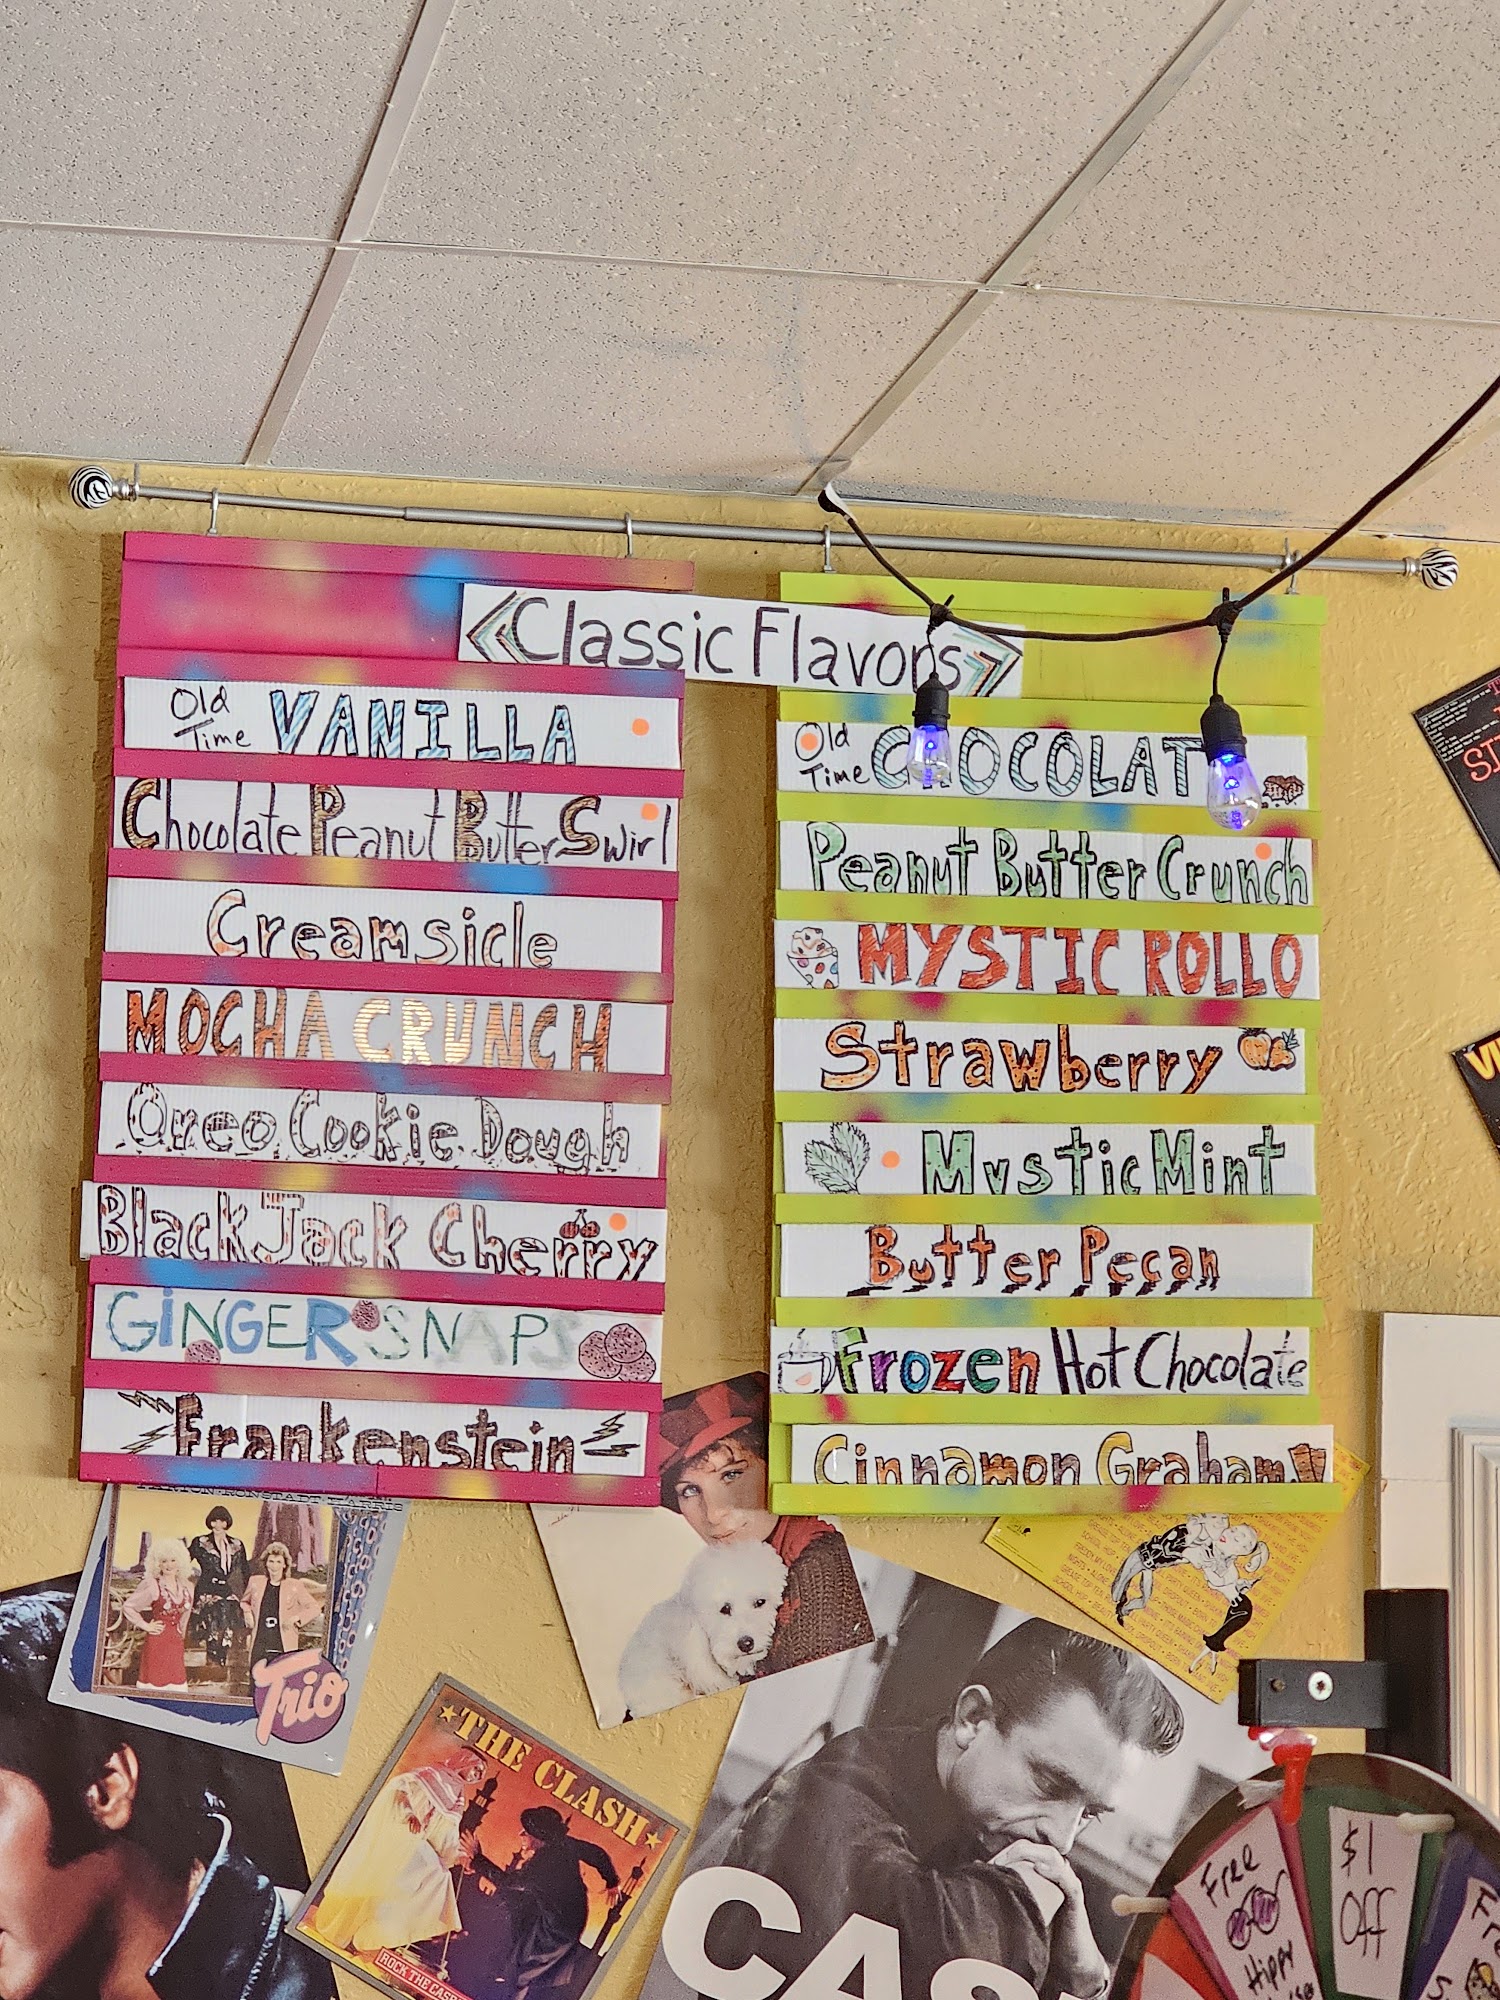 Classic Flavors
Old Time VANILLA
Chocolate Peanut Butter Swirl
Creamsicle
MOCHA CRUNCH
Oreo Cookie Dough
Black Jack Cherry
GiNGER SNAPS
Frankenstein
Old Time CHOCOLAT
Peanut Butter Crunch
MYSTIC ROLLO
Strawberry
Mystic Mint
Butter Pecan
Frozen Hot Chocolate
Cinnamon Graham
PARTON RONSTADT HARRIS
Trio
THE CLASH
ROCK THE CASB
CASH
Free
Hippy
$1
Off